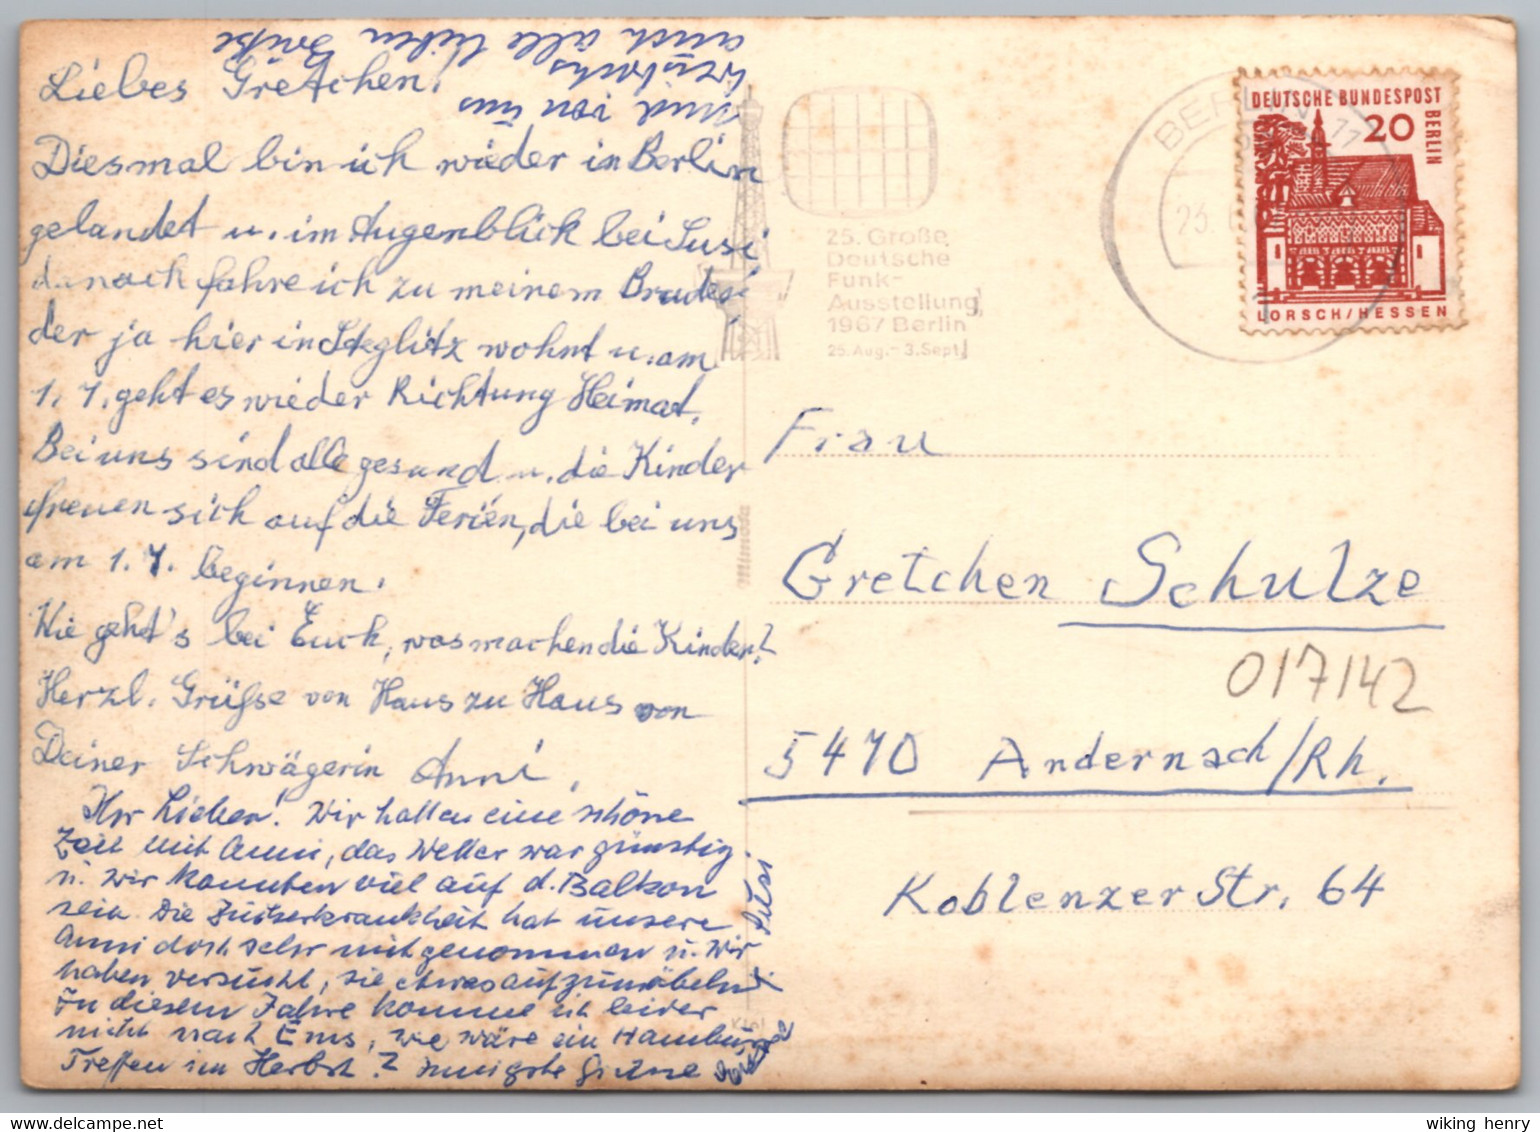 Liebes Gretchen!
Diesmal bin ich wieder in Berlin
gelandet u. im Augenblick bei Susi
danach fahre ich zu meinem Bruder
der ja hier in Steglitz wohnt u. am
1. 7. geht es wieder Richtung Heimat.
Bei uns sind alle gesund u. die Kinder
freuen sich auf die Ferien, die bei uns
am 1. 7. beginnen.
Wie geht's bei Euch, was machen die Kinder?
Herzl. Grüsse von Haus zu Haus von
Deiner Schwägerin Anni.
Ihr Lieben! Wir hatten eine schöne
Zeit mit Anni, das Wetter war günstig
u. wir konnten viel auf d. Balkon
sein. Die Zuckerkrankheit hat unsere
Anni doch sehr mitgenommen u. wir
haben versucht, sie etwas aufzumöbeln.
In diesem Jahre komme ich leider
nicht nach Ems, wie wäre ein Hamburg
Treffen im Herbst? Innigste Grüsse
Susi
und von uns
auch alle lieben Grüße
25. Große
Deutsche
Funk-
Ausstellung
1967 Berlin
25. Aug. - 3. Sept.
BERLIN
23. 6.
DEUTSCHE BUNDESPOST
BERLIN
20
LORSCH/HESSEN
mimosa
Frau
Gretchen Schulze
017142
5470 Andernach/Rh.
Koblenzer Str. 64
wiking henry